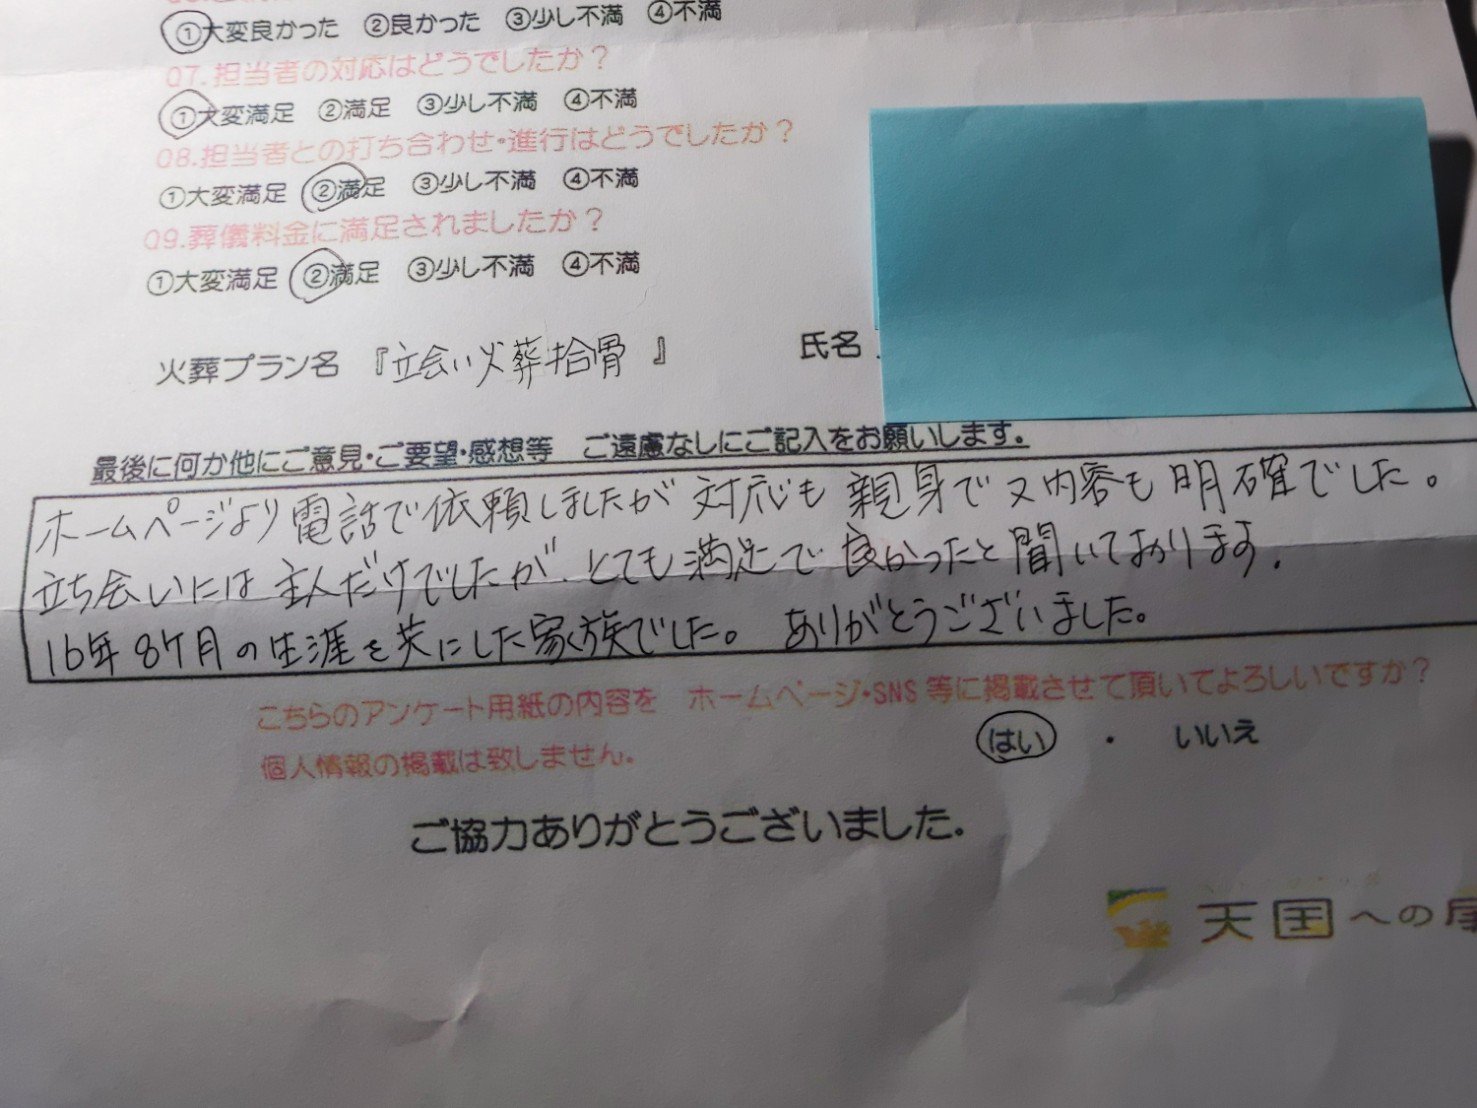 ①大変良かった ②良かった ③少し不満 ④不満
Q7.担当者の対応はどうでしたか？
①大変満足 ②満足 ③少し不満 ④不満
Q8.担当者との打ち合わせ・進行はどうでしたか？
①大変満足 ②満足 ③少し不満 ④不満
Q9.葬儀料金に満足されましたか？
①大変満足 ②満足 ③少し不満 ④不満
火葬プラン名 『立会い火葬拾骨 』 氏名
最後に何か他にご意見・ご要望・感想等 ご遠慮なしにご記入をお願いします。
ホームページより電話で依頼しましたが 対応も 親身で又内容も 明確でした。
立ち会いには主人だけでしたが、とても満足で良かったと聞いております。
16年8ケ月の生涯を共にした家族でした。 ありがとうございました。
こちらのアンケート用紙の内容を ホームページ・SNS等に掲載させて頂いてよろしいですか？
個人情報の掲載は致しません。 はい ・ いいえ
ご協力ありがとうございました。
天国への